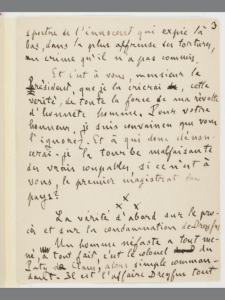 3
spectre de l'innocent qui expie là-
bas, dans la plus affreuse des tortures,
un crime qu'il n'a pas commis.
Et c'est à vous, monsieur le
Président, que je la crierai, cette
vérité, de toute la force de ma révolte
d'honnête homme. Pour votre
honneur, je suis convaincu que vous
l'ignorez. Et à qui donc dénon-
cerai-je la tourbe malfaisante
des vrais coupables, si ce n'est à
vous, le premier magistrat du
pays?
x x
x
La vérité d'abord sur le pro-
cès et sur la condamnation de Dreyfus
Un homme néfaste a tout me-
né, a tout fait, c'est le colonel du
Paty de Clam, alors simple comman-
dant. Il est l'affaire Dreyfus tout